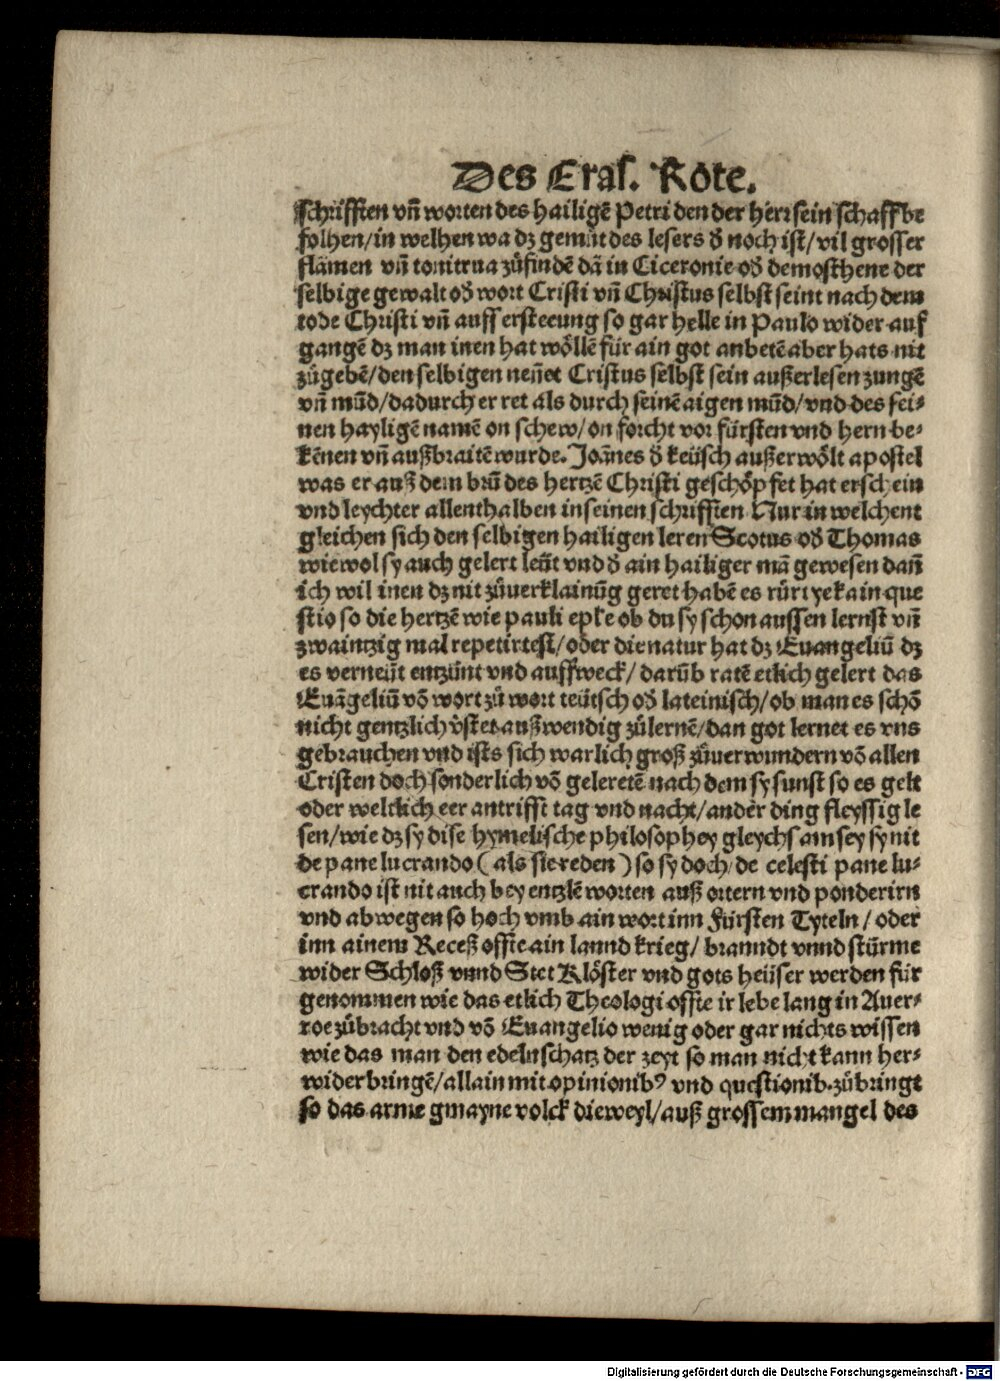 Des Eras. Rote.
schrifften vñ worten des hailigē Petri den der herr sein schaff be
folhen/in welhen wa dz gemüt des lesers d̕ noch ist/vil grosser
flāmen vñ tonitrua zůfindē dā in Ciceronie od̕ demosthene der
selbige gewalt od̕ wort Cristi vñ Christus selbst seint nach dem
tode Christi vñ auff ersteeung so gar helle in Paulo wider auf
gangē dz man inen hat wöllē für ain got anbetē aber hats nit
zůgebē/den selbigen neñet Cristus selbst sein außerlesen zungē
vñ mūd/dadurch er ret als durch seinē aigen mūd/vnd des sei⸗
nen hayligē namē on schew/on forcht vor fürsten vnd hern be⸗
kēnen vñ außbraitē wurde. Joānes d̕ keüsch außerwölt apostel
was er auß dem brū des hertzē Christi geschöpfet hat erschein
vnd leychter allenthalben in seinen schrifften Nur in welchent
gleichen sich den selbigen hailigen leren Scotus od̕ Thomas
wiewol sy auch gelert leüt vnd d̕ ain hailiger mā gewesen dañ
ich wil inen dz nit zůuerklainūg geret habē es rürt ye kain que
stio so die hertzē wie pauli eple ob du sy schon aussen lernst vñ
zwaintzig mal repetirtest/oder die natur hat dz Euangeliū dz
es verneüt entzünt vnd auffweck/darūb ratē etlich gelert das
Euāgeliū vō wort zů wort teütsch od̕ lateinisch/ob man es schō
nicht gentzlich v̕stet außwendig zůlernē/dan got lernet es vns
gebrauchen vnd ists sich warlich groß zůuerwundern vō allen
Cristen doch sonderlich vō geleretē nach dem sy sunst so es gelt
oder weltlich eer antrifft tag vnd nacht/ander ding fleyssig le
sen/wie dz sy dise hymelische philosophey gleychsam sey sy nit
de pane lucrando (als sie reden) so sy doch de celesti pane lu⸗
crando ist nit auch bey entzlē worten auß ortern vnd ponderirn
vnd abwegen so hoch vmb ain wort inn Fürsten Tyteln/oder
inn ainem Receß offte ain lannd krieg/branndt vnnd stürme
wider Schloß vnnd Stet Klöster vnd gots heüser werden für
genommen wie das etlich Theologi offte ir lebe lang in Auer⸗
roe zůbracht vnd vō Euangelio wenig oder gar nichts wissen
wie das man den edeln schatz der zeyt so man nicht kann her⸗
widerbringē/allain mit opinionibꝰ vnd questionib. zůbringt
so das arme gmayne volck dieweyl/auß grossem mangel des
Digitalisierung gefördert durch die Deutsche Forschungsgemeinschaft - DFG